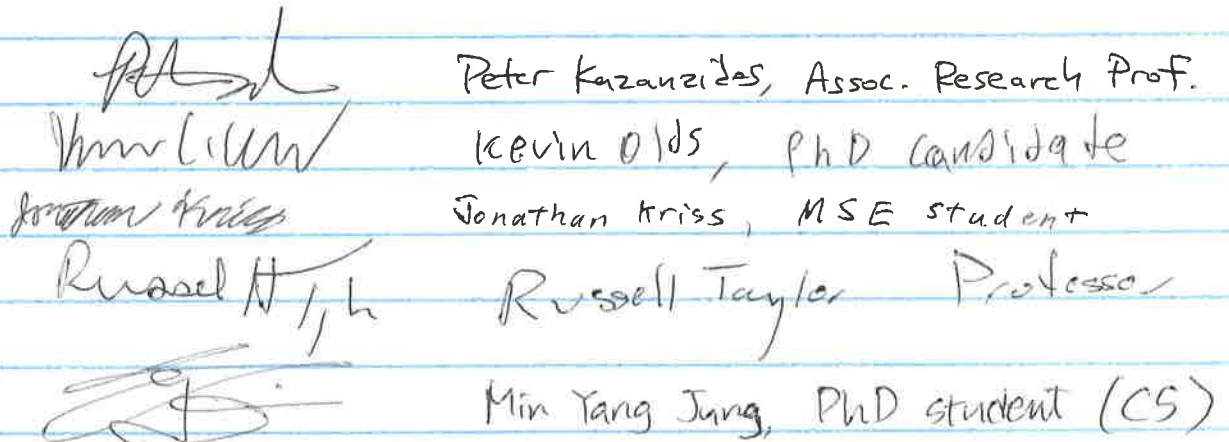 Peter Kazanzides, Assoc. Research Prof.
Kevin Olds, PhD Candidate
Jonathan Kriss Jonathan Kriss, MSE student
Russell H Russell Taylor Professor
Min Yang Jung, PhD student (CS)